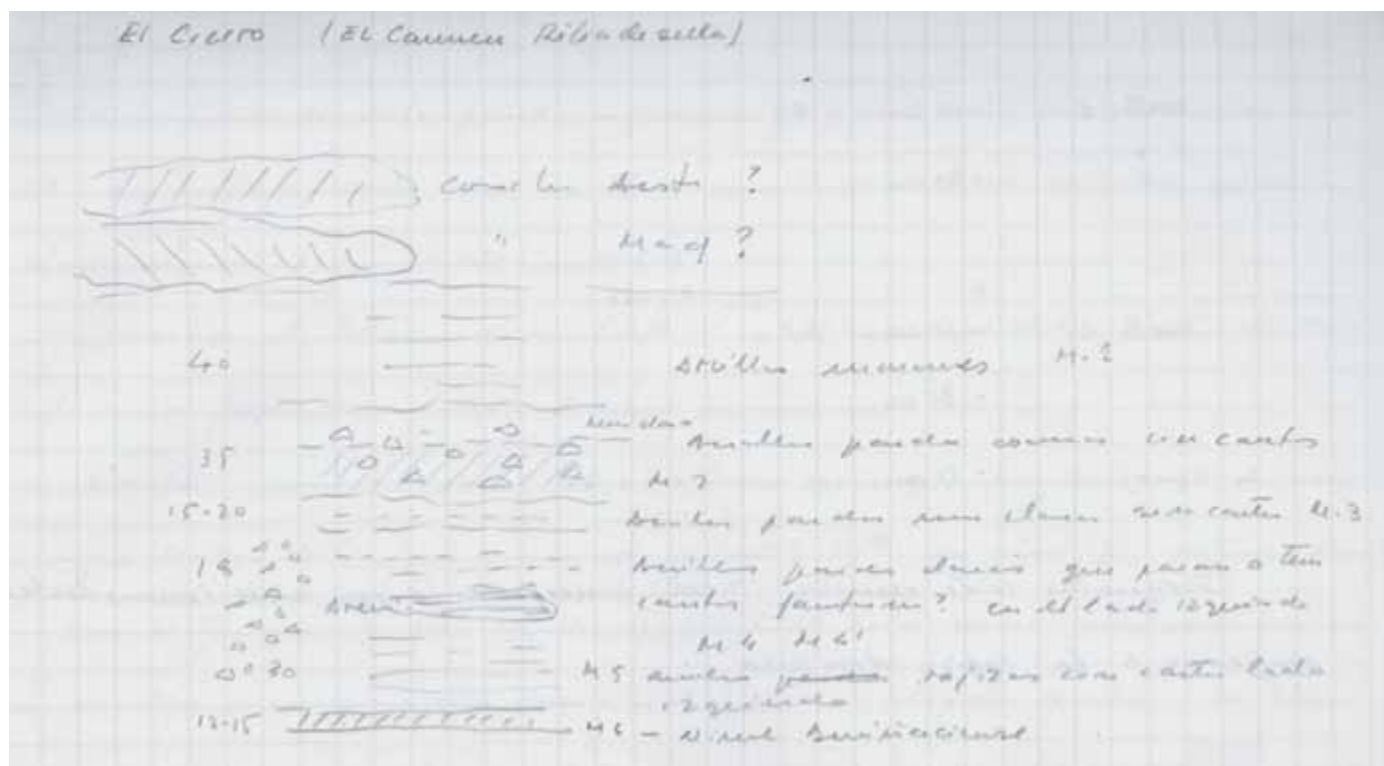 El Cierro (El Carmen Ribadesella)
Conch ?
" Mag ?
40 Arcillas marrones M.1
35 Arcillas pardas con cantos
M.2
15-20 Arcillas pardas mas claras sin cantos M.3
18 Arcillas pardas claras que pasan a
Aren cantos ? en el lado izquierdo
M4 M4'
30 M5 arcillas rojizas con cantos lado
izquierdo
12-15 M6 - Nivel Auriñaciense